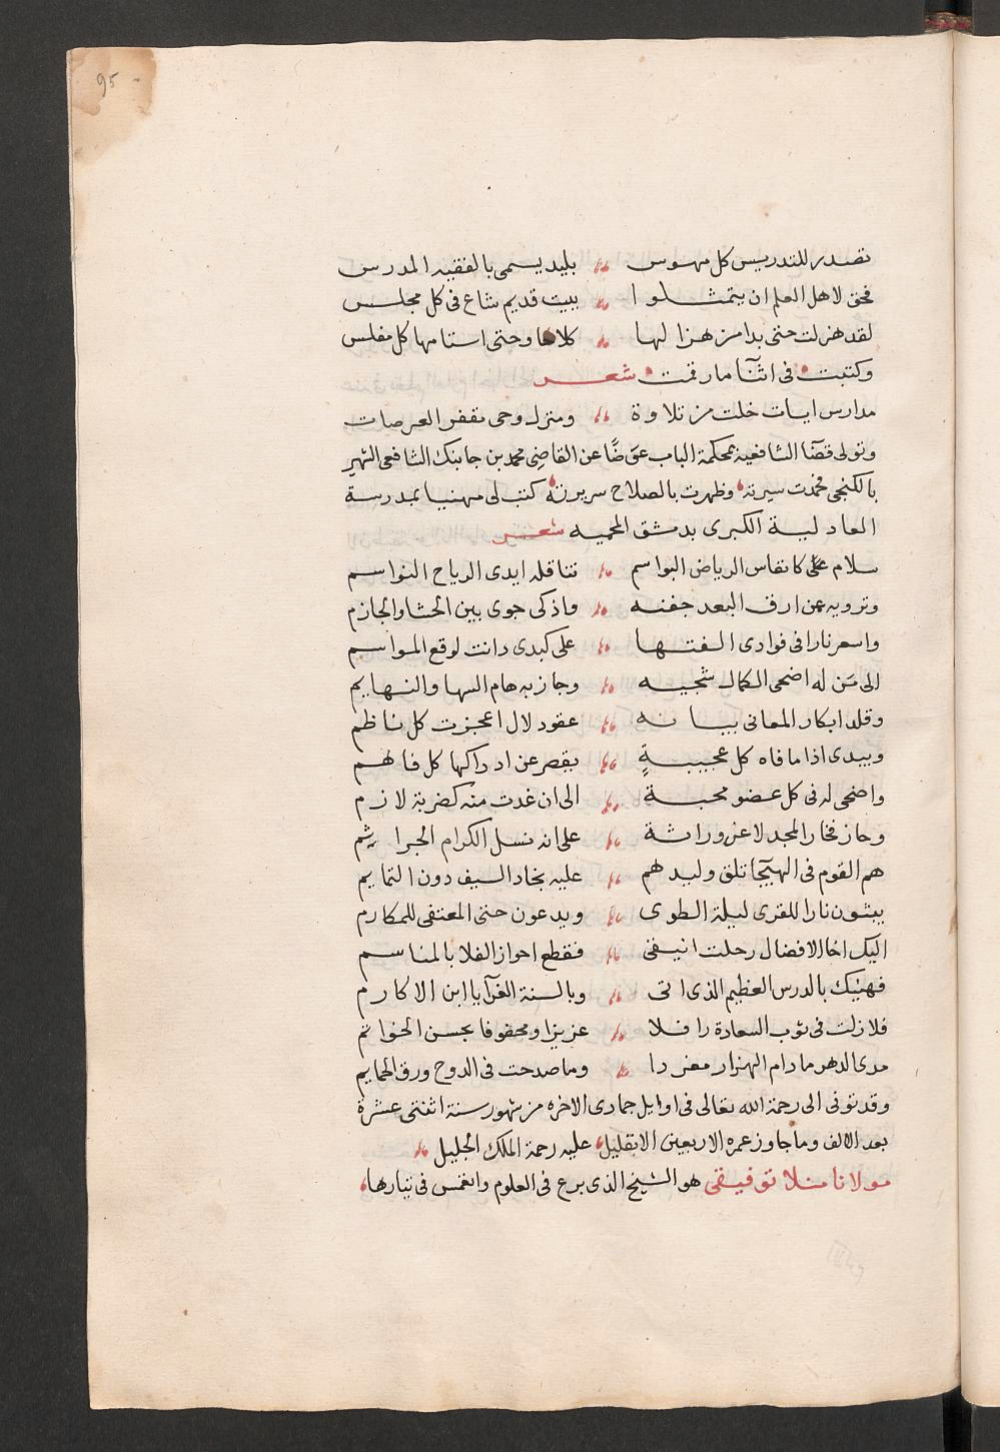 95
تصدر للتدريس كل مهوس بليد يسمى بالفقيه المدرس
فحق لاهل العلم ان يتمثلوا ببيت قديم شاع فى كل مجلس
لقد هزلت حتى بدا من هزالها كلاها وحتى استامها كل مفلس
وكتبت فى اثنآ ما رقمت شعر
مدارس ايات خلت من تلاوة ومنزل وحى مقفر العرصات
وتولى قضآ الشافعية بمحكمة الباب عوضًا عن القاضى محمد بن جانبك الشافعى الشهير
بالكنجى فحمدت سيرته وظهرت بالصلاح سريرته كتب لى مهنيا بمدرسة
العادلية الكبرى بدمشق المحميه شعر
سلام على كانفاس الرياض البواسم تناقله ايدى الرياح النواسم
وترويه عن ارق البعد جفنه واذكى جوى بين الحشا والحازم
واسعر نارا فى فوادى الفتها على كبدى دانت لوقع المواسم
الى من له اضحى الكمال شجيه وجاز به هام السها والنهايم
وقلد ابكار المعانى بيانه عقود لال اعجزت كل ناظم
ويبدى اذا ما فاه كل عجيبةٍ يقصر عن ادراكها كل فاهم
واضحى له فى كل عضو محبة الى ان غدت منه كضربة لازم
وحاز فخار المجد لا عن وراثة على انه نسل الكرام الجراثم
هم القوم فى الهيجآ تلق وليدهم عليه نجاد السيف دون التمايم
يبثون نارا للقرى ليلة الطوى ويدعون حتى المعتفى للمكارم
اليك اخا الافضال رحلت انيقى فقطع احواز الفلا بالمناسم
فهنيك بالدرس العظيم الذى اتى وبالسنة الغرآ يا ابن الاكارم
فلا زلت فى ثوب السعادة رافلا عزيزا ومحفوفا بحسن الخواتم
مدى الدهر ما دام الهزار مغردا وما صدحت فى الدوح ورق الحمايم
وقد توفى الى رحمة الله تعالى فى اوايل جمادى الاخره من شهور سنة اثنتى عشرة
بعد الالف وما جاوز عمره الاربعين الا بقليل عليه رحمة الملك الجليل
مولانا منلا توفيقى هو الشيخ الذى برع فى العلوم وانغمس فى تيارها